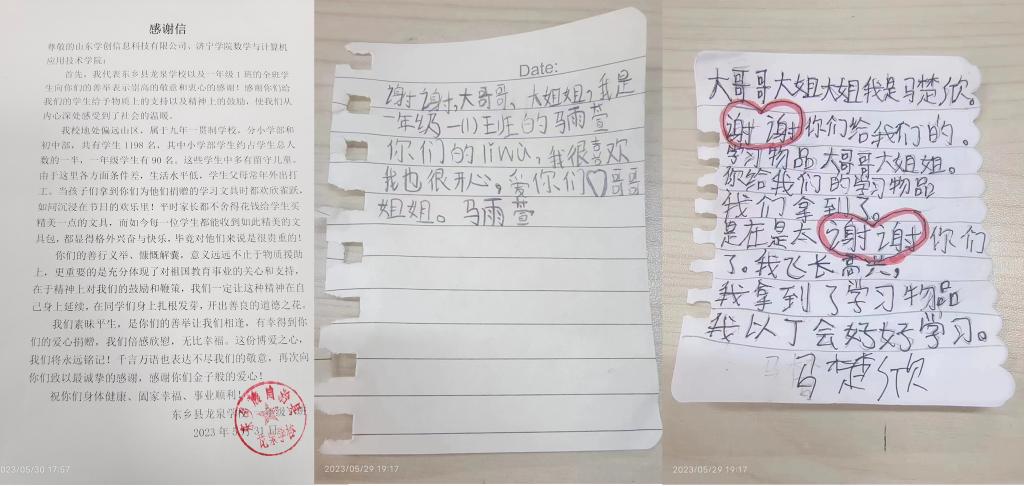 感谢信
尊敬的山东学创信息科技有限公司、济宁学院数学与计算机
应用技术学院：
首先，我代表东乡县龙泉学校以及一年级1班的全班学
生向你们的善举表示崇高的敬意和衷心的感谢！感谢你们给
我们的学生给予物质上的支持以及精神上的鼓励，使我们从
内心深处感受到了社会的温暖。
我校地处偏远山区，属于九年一贯制学校，分小学部和
初中部，共有学生1198名，其中小学部学生约占学生总人
数的一半，一年级学生有90名。这些学生中多有留守儿童。
由于这里各方面条件差，生活水平低，学生父母常年外出打
工。当孩子们拿到你们为他们捐赠的学习文具时都欢欣雀跃，
如同沉浸在节日的欢乐里！平时家长都不舍得花钱给学生买
精美一点的文具，而如今每一位学生都能收到如此精美的文
具包，都显得格外兴奋与快乐，毕竟对他们来说是很贵重的！
你们的善行义举、慷慨解囊，意义远远不止于物质援助
上，更重要的是充分体现了对祖国教育事业的关心和支持，
在于精神上对我们的鼓励和鞭策，我们一定让这种精神在自
己身上延续，在同学们身上扎根发芽，开出善良的道德之花。
我们素昧平生，是你们的善举让我们相逢，有幸得到你
们的爱心捐赠，我们倍感欣慰，无比幸福。这份博爱之心，
我们将永远铭记！千言万语也表达不尽我们的敬意，再次向
你们致以最诚挚的感谢，感谢你们金子般的爱心！
祝你们身体健康、阖家幸福、事业顺利！
东乡县龙泉学
2023年5月31日
2023/05/30 17:57
Date:
谢谢，大哥哥，大姐姐，我是
一年级一(1)班的马雨萱
你们的liwu，我很喜欢
我也很开心，爱你们♡哥哥
姐姐。马雨萱
2023/05/29 19:17
大哥哥大姐大姐我是马楚欣。
谢谢你们给我们的。
学习物品大哥哥大姐姐。
你给我们的学习物品
我们拿到了。
是在是太谢谢你们
了。我飞长高兴，
我拿到了学习物品
我以丁会好好学习。
马楚欣
2023/05/29 19:17